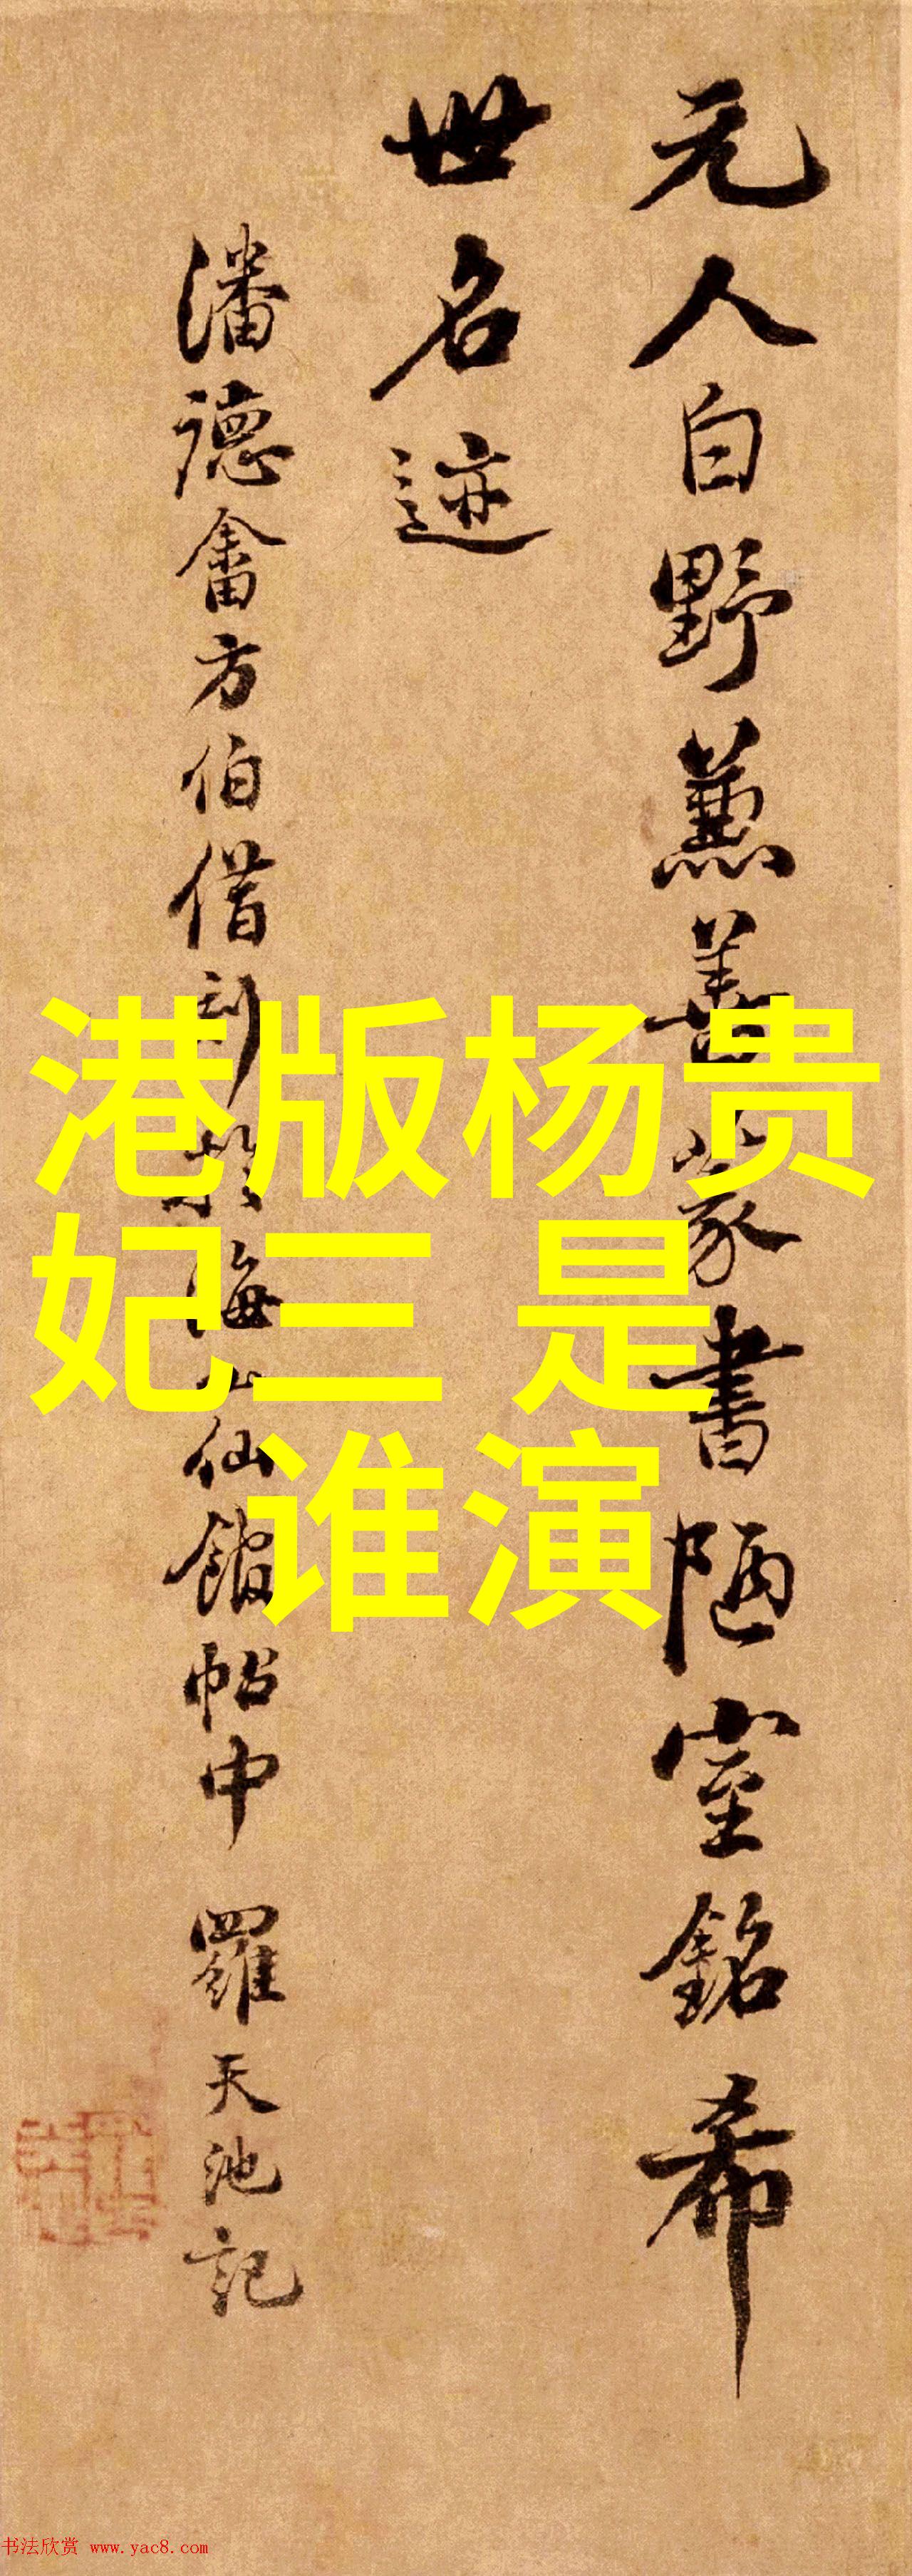 元人白野蕙善篆書陋室銘希
世名迹
潘德畬方伯借刻於海山仙館帖中 羅天池記
港版杨贵
妃三 是
谁演
书法欣赏 www.yac8.com